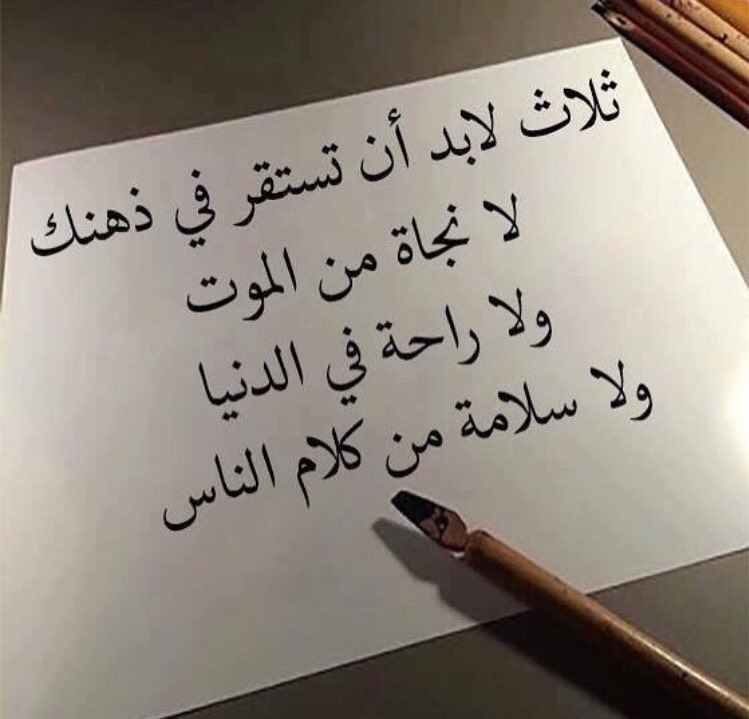 ثلاث لابد أن تستقر في ذهنك
لا نجاة من الموت
ولا راحة في الدنيا
ولا سلامة من كلام الناس